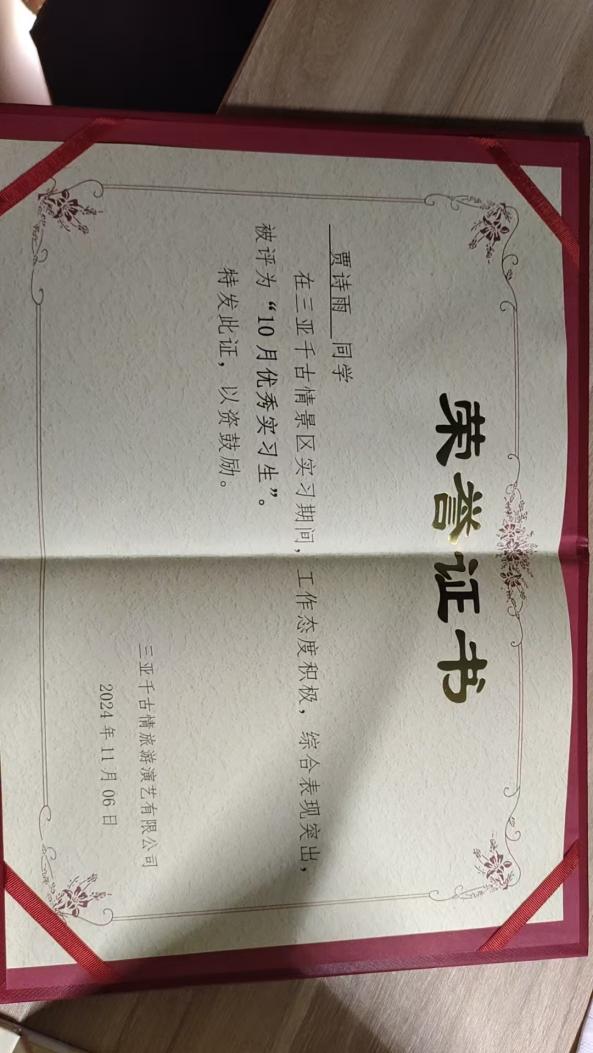 荣誉证书
贾诗雨 同学
在三亚千古情景区实习期间，工作态度积极，综合表现突出，
被评为“10月优秀实习生”。
特发此证，以资鼓励。
三亚千古情旅游演艺有限公司
2024年11月06日